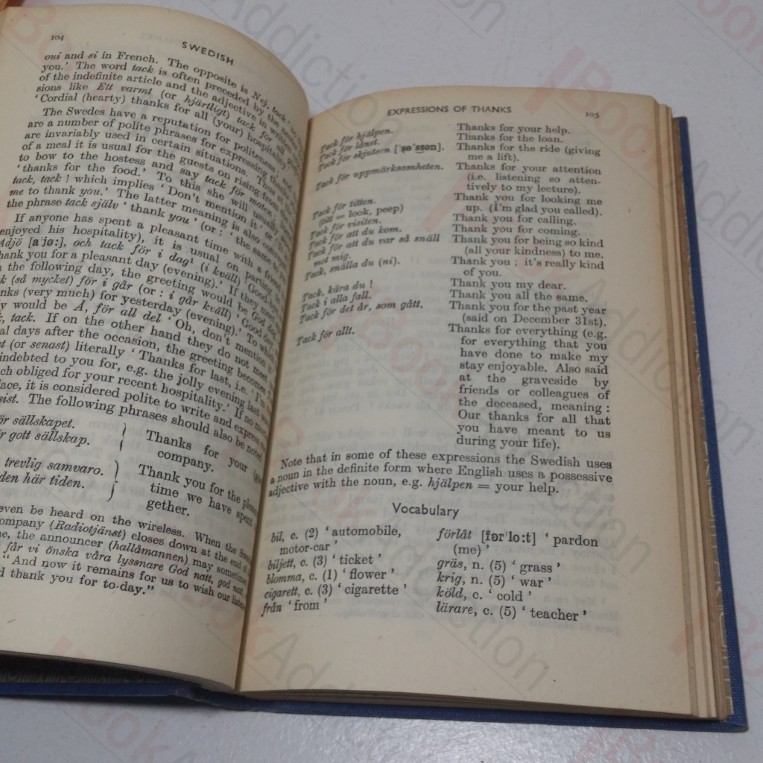 104
SWEDISH
oui and si in French. The opposite is Nej, tack
you.' The word tack is often preceded by the
of the indefinite article and the adjective is
sions like Ett varmt (or hjärtligt) tack för all
'Cordial (hearty) thanks for all (your) hospitality
The Swedes have a reputation for politeness
are a number of polite phrases for expressing
are invariably used in certain situations.
of a meal it is usual for the guests on rising from
to bow to the hostess and say tack för maten
'thanks for the food.' To this she will usually
tack, tack! which implies 'Don't mention it
me to thank you.' The latter meaning is also
the phrase tack själv 'thank you' (or: 'the same
If anyone has spent a pleasant time with a friend
enjoyed his hospitality), it is usual on parting
Adjö [a'jø:], och tack för i dag! (i kväll)
hank you for a pleasant day (evening).' If they
the following day, the greeting would be
k (så mycket) för i går (or: i går kväll)
nks (very much) for yesterday (evening).' To which
y would be Å, för all del 'Oh, don't mention it
k, tack. If on the other hand they do not
al days after the occasion, the greeting becomes
st (or senast) literally 'Thanks for last, i.e. 'I'm
indebted to you for, e.g. the jolly evening last
ch obliged for your recent hospitality.' If no
lace, it is considered polite to write and express
sist. The following phrases should also be noted
ör sällskapet.
ör gott sällskap.
Thanks for your
company.
trevlig samvaro.
den här tiden.
Thank you for the
time we have spent
gether.
even be heard on the wireless. When the
ompany (Radiotjänst) closes down at the end
e, the announcer (hallåmannen) may sometimes
får vi önska våra lyssnare God natt, god natt
"And now it remains for us to wish our
d thank you for to-day."
EXPRESSIONS OF THANKS
105
Tack för hjälpen. Thanks for your help.
Tack för lånet. Thanks for the loan.
Tack för skjutsen Thanks for the ride (giving
me a lift).
Tack för uppmärksamheten. Thanks for your attention
(i.e. listening so atten-
tively to my lecture).
Tack för titten. Thank you for looking me
titt = look, peep) up. (I'm glad you called).
Tack för visiten. Thank you for calling.
Tack för att du kom. Thank you for coming.
Tack för att du var så snäll Thank you for being so kind
mot mig. (all your kindness) to me.
Tack, snälla du (ni). Thank you: it's really kind
of you.
Tack, kära du! Thank you my dear.
Tack i alla fall. Thank you all the same.
Tack för det år, som gått. Thank you for the past year
(said on December 31st).
Tack för allt. Thanks for everything (e.g.
for everything that you
have done to make my
stay enjoyable. Also said
at the graveside by
friends or colleagues of
the deceased, meaning:
Our thanks for all that
you have meant to us
during your life).
Note that in some of these expressions the Swedish uses
a noun in the definite form where English uses a possessive
adjective with the noun, e.g. hjälpen = your help.
Vocabulary
bil, c. (2) 'automobile,
motor-car'
biljett, c. (3) 'ticket'
blomma, c. (1) 'flower'
cigarett, c. (3) 'cigarette'
från 'from'
förlåt [fœr'lo:t] 'pardon
(me)'
gräs, n. (5) 'grass'
krig, n. (5) 'war'
köld, c. 'cold'
lärare, c. (5) 'teacher'